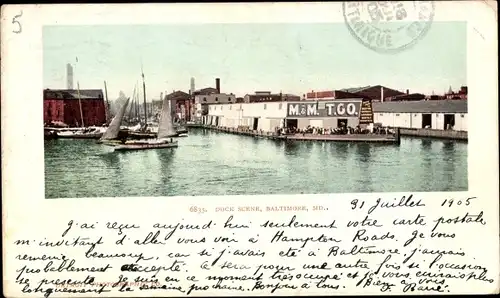 5
M.& M. T.CO.
6835. DOCK SCENE, BALTIMORE, MD.,
31 Juillet 1905
J'ai reçu aujourd'hui seulement votre carte postale
m'invitant d'aller vous voir à Hampton Roads. Je vous
remercie beaucoup, car si j'avais été à Baltimore, j'aurais
probablement accepté. Ce sera pour une autre fois si l'occasion
se présente. Je suis en ce moment très occupé et vous écrirai plus
longuement la semaine prochaine. Bonjour à tous. Bien à vous,